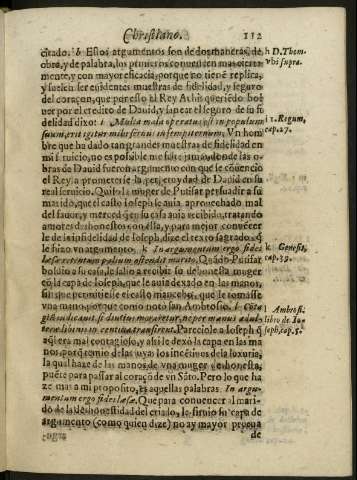 Christiano. 112
citado. h Estos argumentos son de dos maneras, de
obra, y de palabra, los primeros conuencen mas cierta
mente, y con mayor eficacia, porque no tiene replica,
y suelen ser euidentes muestras de fidelidad, y seguro
del coraçon, que por esso el Rey Achis queriẽdo bol
uer por el credito de Dauid, y sanear el seguro de su fi
delidad dixo: i Multa mala operatus est in populum
suum, erit igitur mihi seruus in sempiternum. Vn hom
bre que ha dado tan grandes muestras de fidelidad en
mi seruicio, no es possible me falte jamas, donde las o-
bras de Dauid fueron argumento con que se cõuencio
el Rey, a prometerse la perpetuydad de Dauid en su
real seruicio. Quiso la muger de Putifar persuadir a su
marido, que el casto Ioseph auia aprouechado mal
del fauor, y merced que en su casa auia recibido, tratando
amores deshonestos con ella, y para mejor conuecer
le de la infidelidad de Ioseph, dize el texto sagrado, q̃
le hizo vn argumento. k In argumentum ergo fidei
læsæ retentum palium ostendit marito. Quãdo Putifar
boluio a su casa, le salio a recibir su deshonesta muger
cõ la capa de Ioseph, que le auia dexado en las manos,
sin que permitiesse el casto mancebo, que le tomasse
vna mano, porque como noto san Ambrosio. l Cõta
giũ iudicauit, si diutius moraretur, ne per manus adul
teræ libidinum incentiua transirent. Pareciole a Ioseph q̃
aq̃l era mal contagioso, y assi le dexò la capa en las ma
nos, porq̃ temio de las suyas los incẽtiuos de la luxuria,
la qual haze de las manos de vna muger deshonesta,
puẽte para passar al coraçõ de vn Sãto. Pero lo que ha
ze mas a mi proposito, es aquellas palabras. In argu-
mentum ergo fidei læsæ. Que para conuencer al mari-
do de la deshonestidad del criado, le siruio su capa de
argumento (como quien dize) no ay mayor prueua
de
h D. Thom.
vbi supra.
i 1. Regum,
cap. 27.
k Genesis,
cap. 39.
l Ambrosi.
libro de Io-
seph, cap. 5.